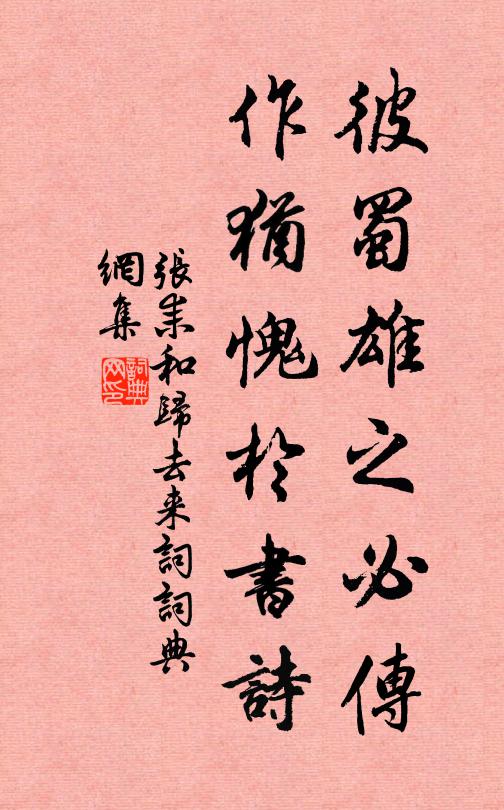 彼蜀雄之必傳
作猶愧於書詩
張耒和歸去来詞詞典
網集
詞典
网印